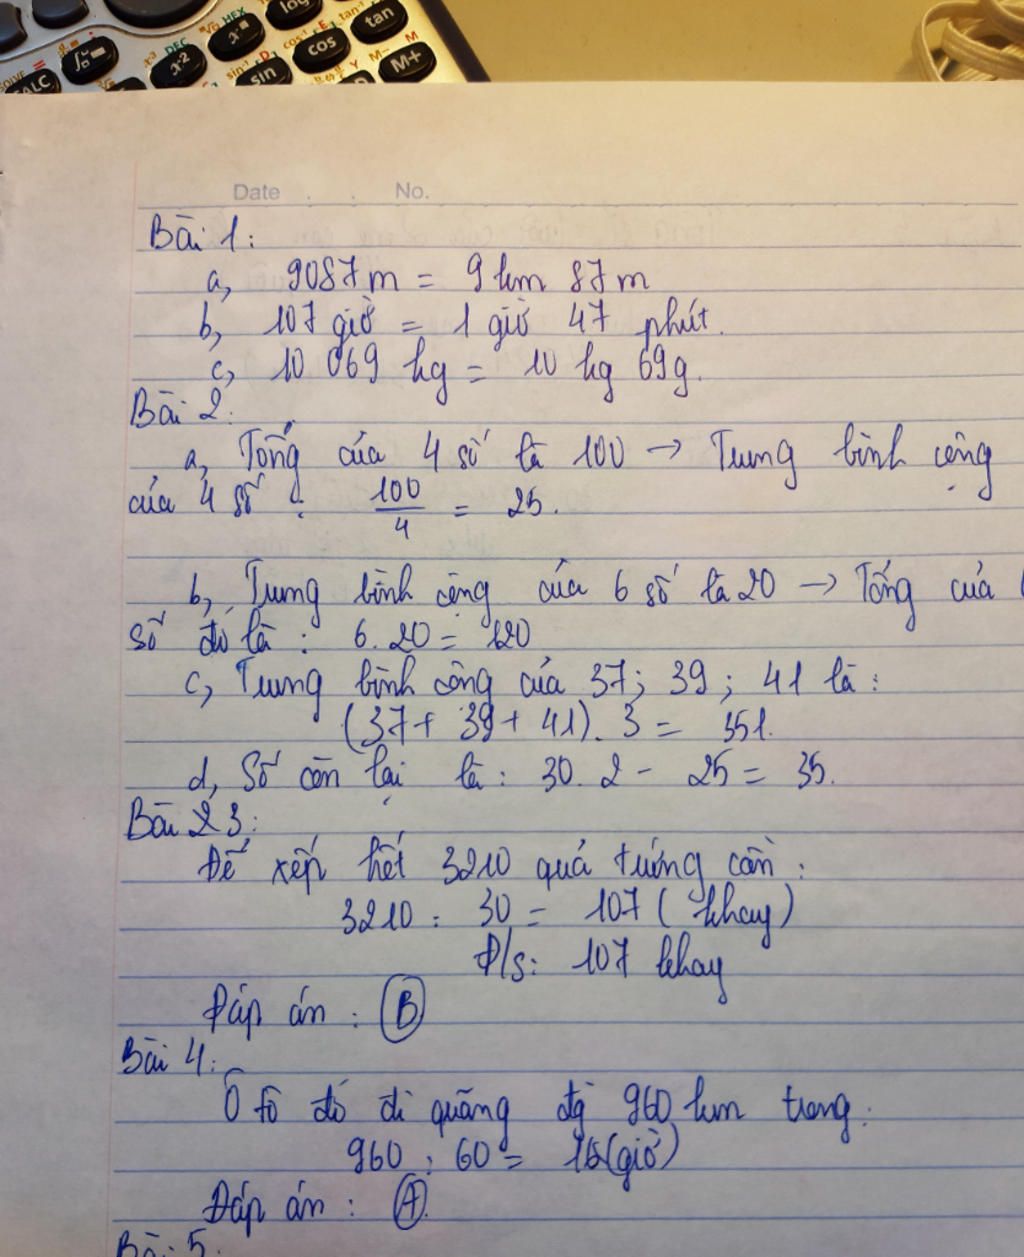 SOLVE =
CALC
x²
DEC
HEX
x■
log
sin⁻¹ D
cos⁻¹ E
tan⁻¹
sin
cos
tan
M- M
M+
Date . . No.
Bài 1:
a, 9087m = 9 km 87m
b, 107 giờ = 1 giờ 47 phút.
c, 10 069 kg = 10 kg 69g.
Bài 2:
a, Tổng của 4 số là 100 → Trung bình cộng
của 4 số : 100/4 = 25.
b, Trung bình cộng của 6 số là 20 → Tổng của 6
số đó là : 6.20 = 120
c, Trung bình cộng của 37; 39; 41 là :
(37+ 39 + 41). 3 = 351.
d, Số còn lại là : 30. 2 - 25 = 35.
Bài 3:
Để xếp hết 3210 quả trứng cần :
3210 : 30 = 107 ( khay)
Đ/s: 107 khay
Đáp án : B
Bài 4:
Ô tô đó đi quãng đg 960 km trong:
960 : 60 = 16(giờ)
Đáp án : A.
Bài 5.